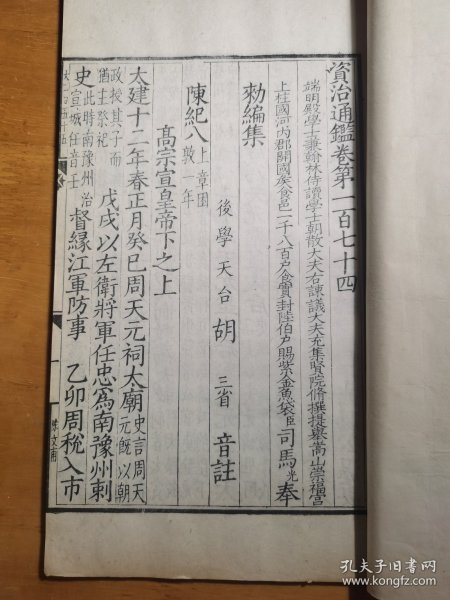 資治通鑑卷第一百七十四
端明殿學士兼翰林侍讀學士朝散大夫右諫議大夫充集賢院脩撰提舉嵩山崇福宮
上柱國河內郡開國矦食邑一千八百户食實封陸伯户賜紫金魚袋臣司馬光奉
勑編集
後學天台胡三省音註
陳紀八上章困敦一年
高宗宣皇帝下之上
太建十二年春正月癸巳周天元祠太廟史言周天元既以朝
政授其子而猶主祭祀戊戌以左衛將軍任忠爲南豫州刺
史此時南豫州治宣城任音壬督緣江軍防事乙卯周稅入市
孔夫子旧书网
www.kongfz.com